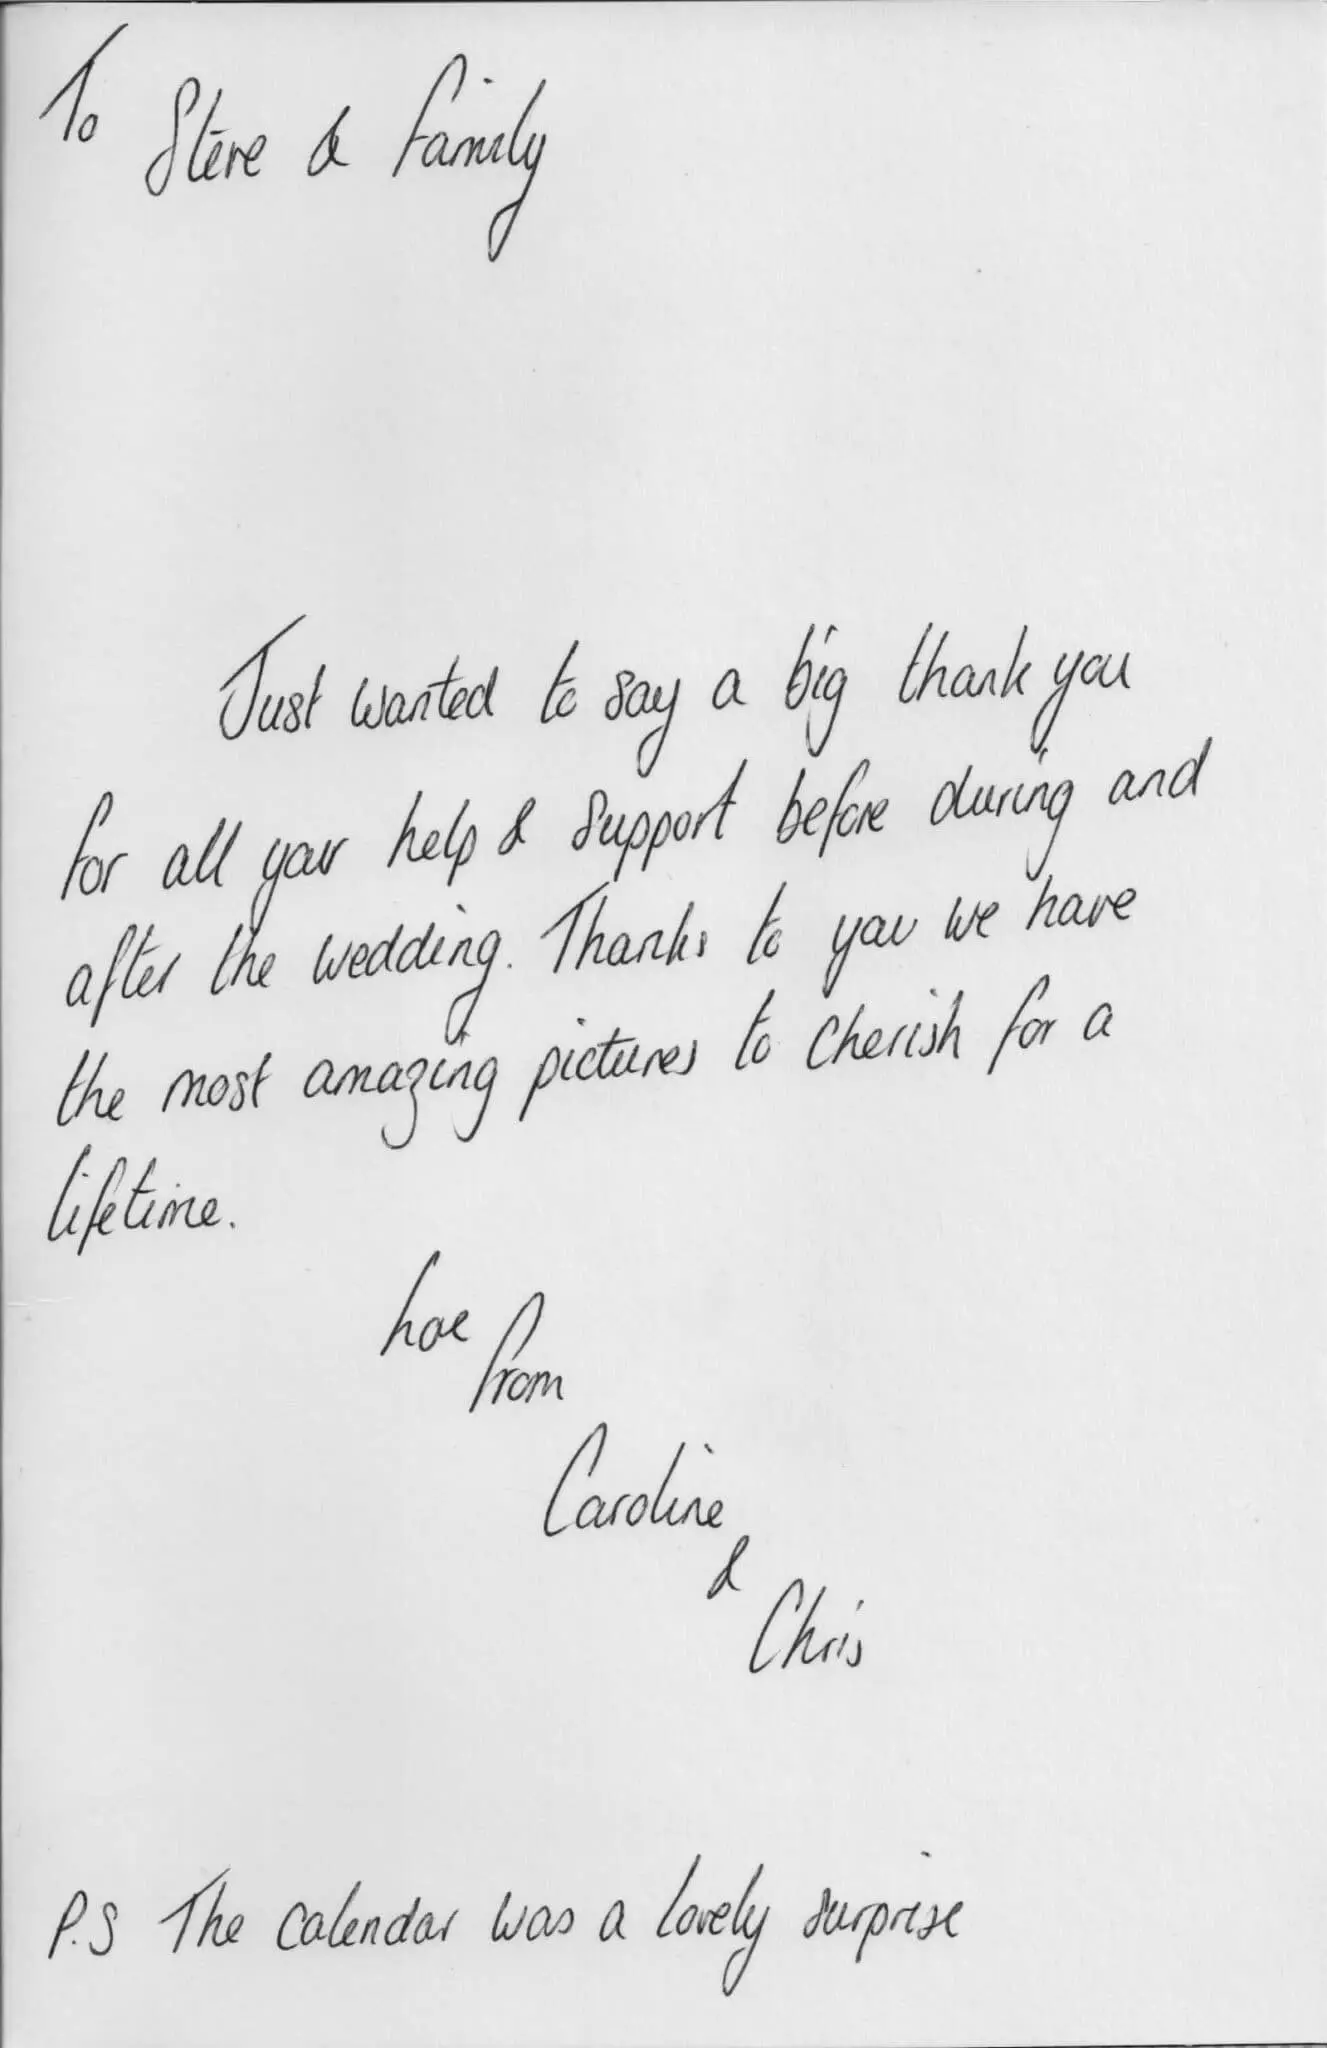 To Steve & Family
Just wanted to say a big thank you
for all your help & support before during and
after the wedding. Thanks to you we have
the most amazing pictures to cherish for a
lifetime.
Love
from
Caroline
&
Chris
P.S The calendar was a lovely surprise